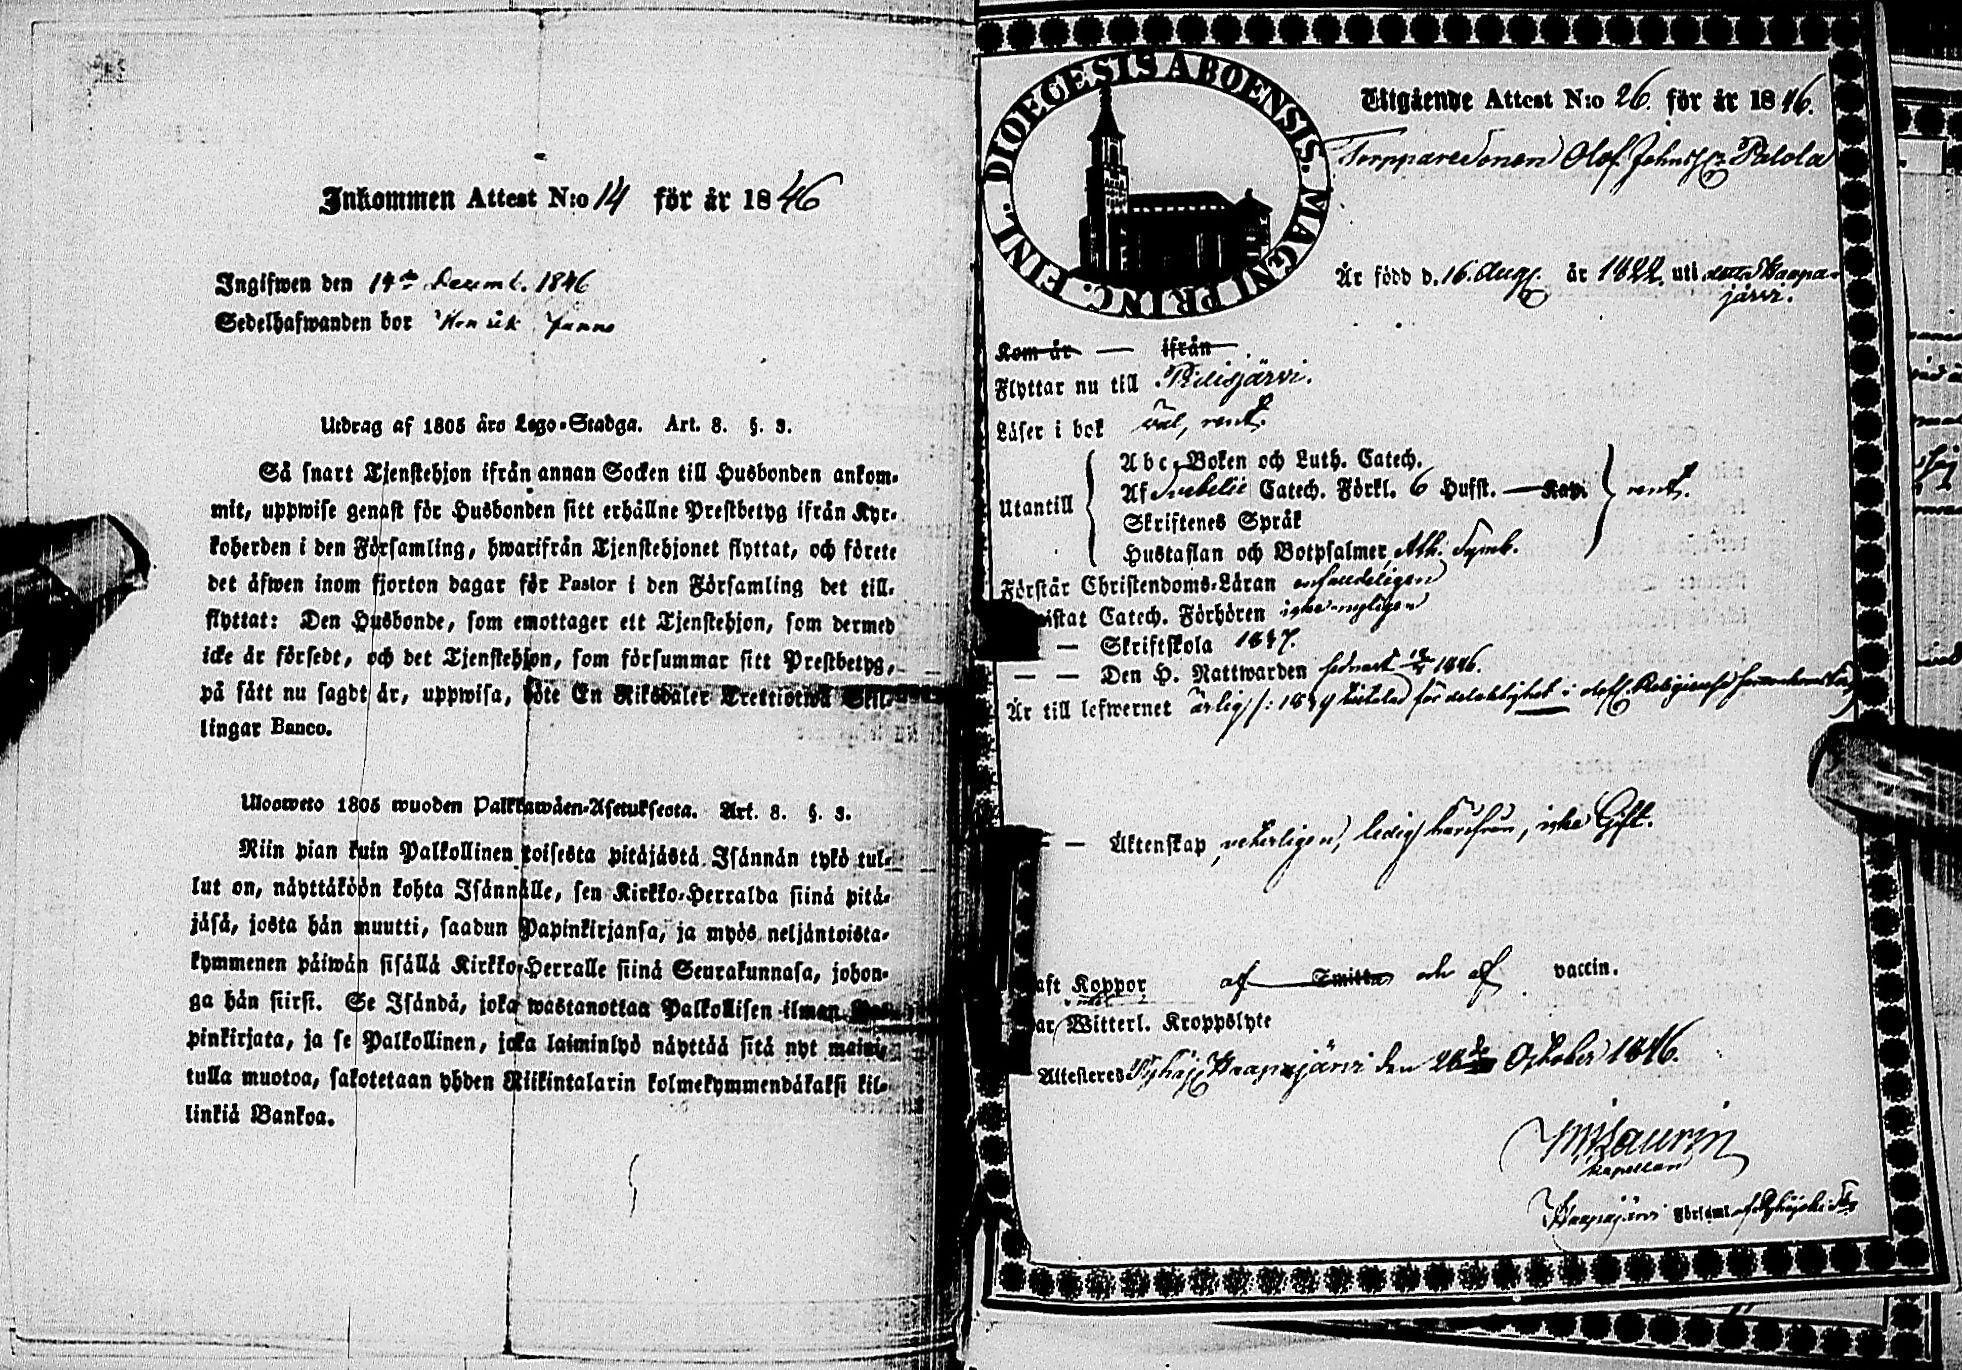 Inkommen Attest N:o 14 för år 1846
Ingifwen den 14de Decemb. 1846
Sedelhafwanden bor Henrik Janne
Utdrag af 1805 års Lego-Stadga. Art. 8. §. 3.
Så snart Tjenstehjon ifrån annan Socken till Husbonden ankom-
mit, uppwise genast för Husbonden sitt erhållne Prestbetyg ifrån Kyr-
koherden i den Församling, hwarifrån Tjenstehjonet flyttat, och förete
det äfwen inom fjorton dagar för Pastor i den Församling det till-
flyttat: Den Husbonde, som emottager ett Tjenstehjon, som dermed
icke är försedt, och det Tjenstehjon, som försummar sitt Prestbetyg,
på sätt nu sagdt är, uppwisa, böte En Riksdaler Trettiotwå Skil-
lingar Banco.
Ulosweto 1805 wuoden Palkkawäen-Asetuksesta. Art. 8. §. 3.
Niin pian kuin Palkollinen toisesta pitäjästä Isännän tykö tul-
lut on, näyttäköön kohta Isännälle, sen Kirkko-Herralda siinä pitä-
jäsä, josta hän muutti, saadun Papinkirjansa, ja myös neljäntoista-
kymmenen päiwän sisällä Kirkko-Herralle siinä Seurakunnasa, johon-
ga hän siirsi. Se Isändä, joka wastanottaa Palkollisen ilman Pa-
pinkirjata, ja se Palkollinen, joka laiminlyö näyttää sitä nyt maini-
tulla muotoa, sakotetaan yhden Riikintalarin kolmekymmendäkaksi kil-
linkiä Bankoa.
DIOECESIS ABOENSIS. MAGNI PRINC. FINL.
Utgående Attest N:o 26. för år 1846.
Torpparesonen Olof Johnsson Palola
Är född d. 16. Aug. år 1822. uti detta Haapa-
järvi.
Kom år — ifrån
Flyttar nu till Pielisjärvi.
Läser i bok väl, rent.
Abc-Boken och Luth. Catech.
Utantill Af Svebelii Catech. Förkl. 6 Hufst. — Kap. rent.
Skriftenes Språk
Hustaflan och Botpsalmer, Ath. Symb.
Förstår Christendoms-Läran
istat Catech. Förhören icke nyligen
— Skriftskola 1837.
— — Den H. Nattwarden sednast 1846.
Är till lefwernet ärlig /: 1839 för delaktighet i Religions
— Äktenskap, veterligen, ledig härifrån, icke Gift.
aft Koppor af Smitta och af vaccin.
ar Witterl. Kroppslyte
Attesteres Pyhäj. Haapajärvi den 28de October 1846.
Kapellan
Haapajärvi Församl. af Pyhäjoki